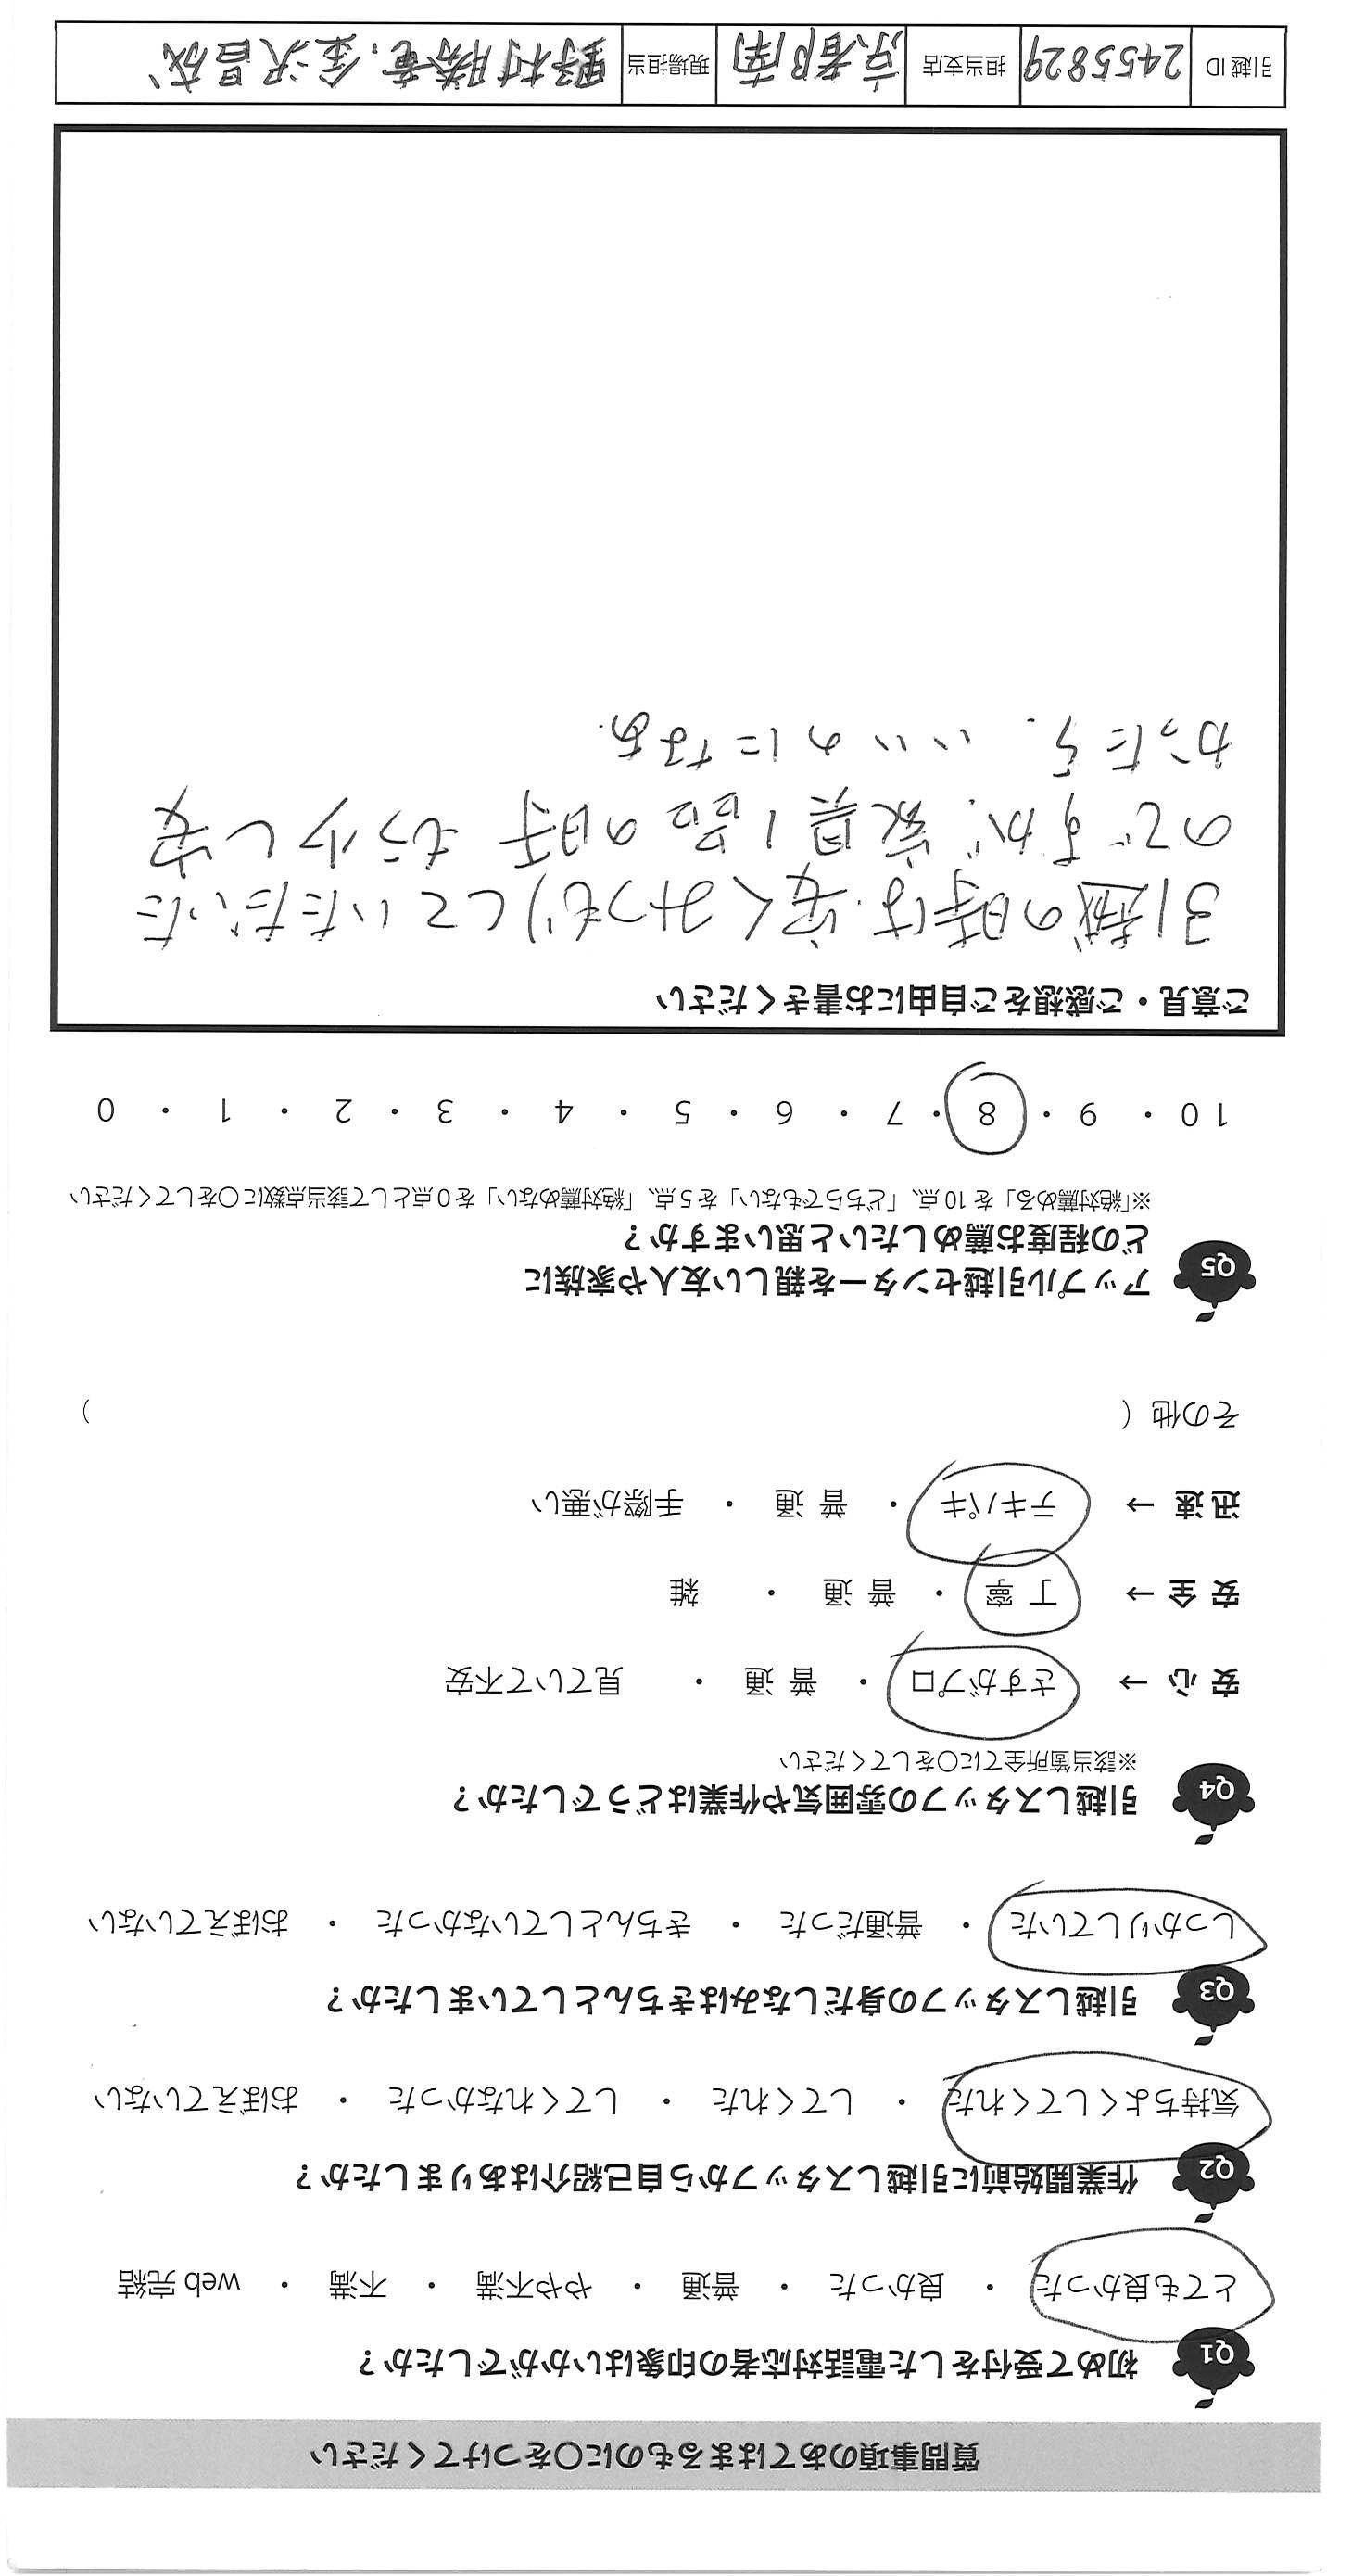 質問事項のあてはまるものに○をつけてください
Q1 初めて受付をした電話対応者の印象はいかがでしたか？
とても良かった ・ 良かった ・ 普通 ・ やや不満 ・ 不満 ・ web 完結
Q2 作業開始前に引越しスタッフから自己紹介はありましたか？
気持ちよくしてくれた ・ してくれた ・ してくれなかった ・ おぼえていない
Q3 引越しスタッフの身だしなみはきちんとしていましたか？
しっかりしていた ・ 普通だった ・ きちんとしていなかった ・ おぼえていない
Q4 引越しスタッフの雰囲気や作業はどうでしたか？
※該当箇所全てに○をしてください
安 心 → さすがプロ ・ 普 通 ・ 見ていて不安
安 全 → 丁 寧 ・ 普 通 ・ 雑
迅 速 → テキパキ ・ 普 通 ・ 手際が悪い
その他（ ）
Q5 アップル引越センターを親しい友人や家族に
どの程度お薦めしたいと思いますか？
※「絶対薦める」を 10 点、「どちらでもない」を 5 点、「絶対薦めない」を 0 点として該当点数に○をしてください
10 ・ 9 ・ 8 ・ 7 ・ 6 ・ 5 ・ 4 ・ 3 ・ 2 ・ 1 ・ 0
ご意見・ご感想をご自由にお書きください
引越の時は安くみつもりしていただいた
のですが、家具1品の時もう少し安
かったら、いいのになぁ.
引越 ID 2455829 担当支店 京都南 現場担当 野村勝竜、金沢昌成